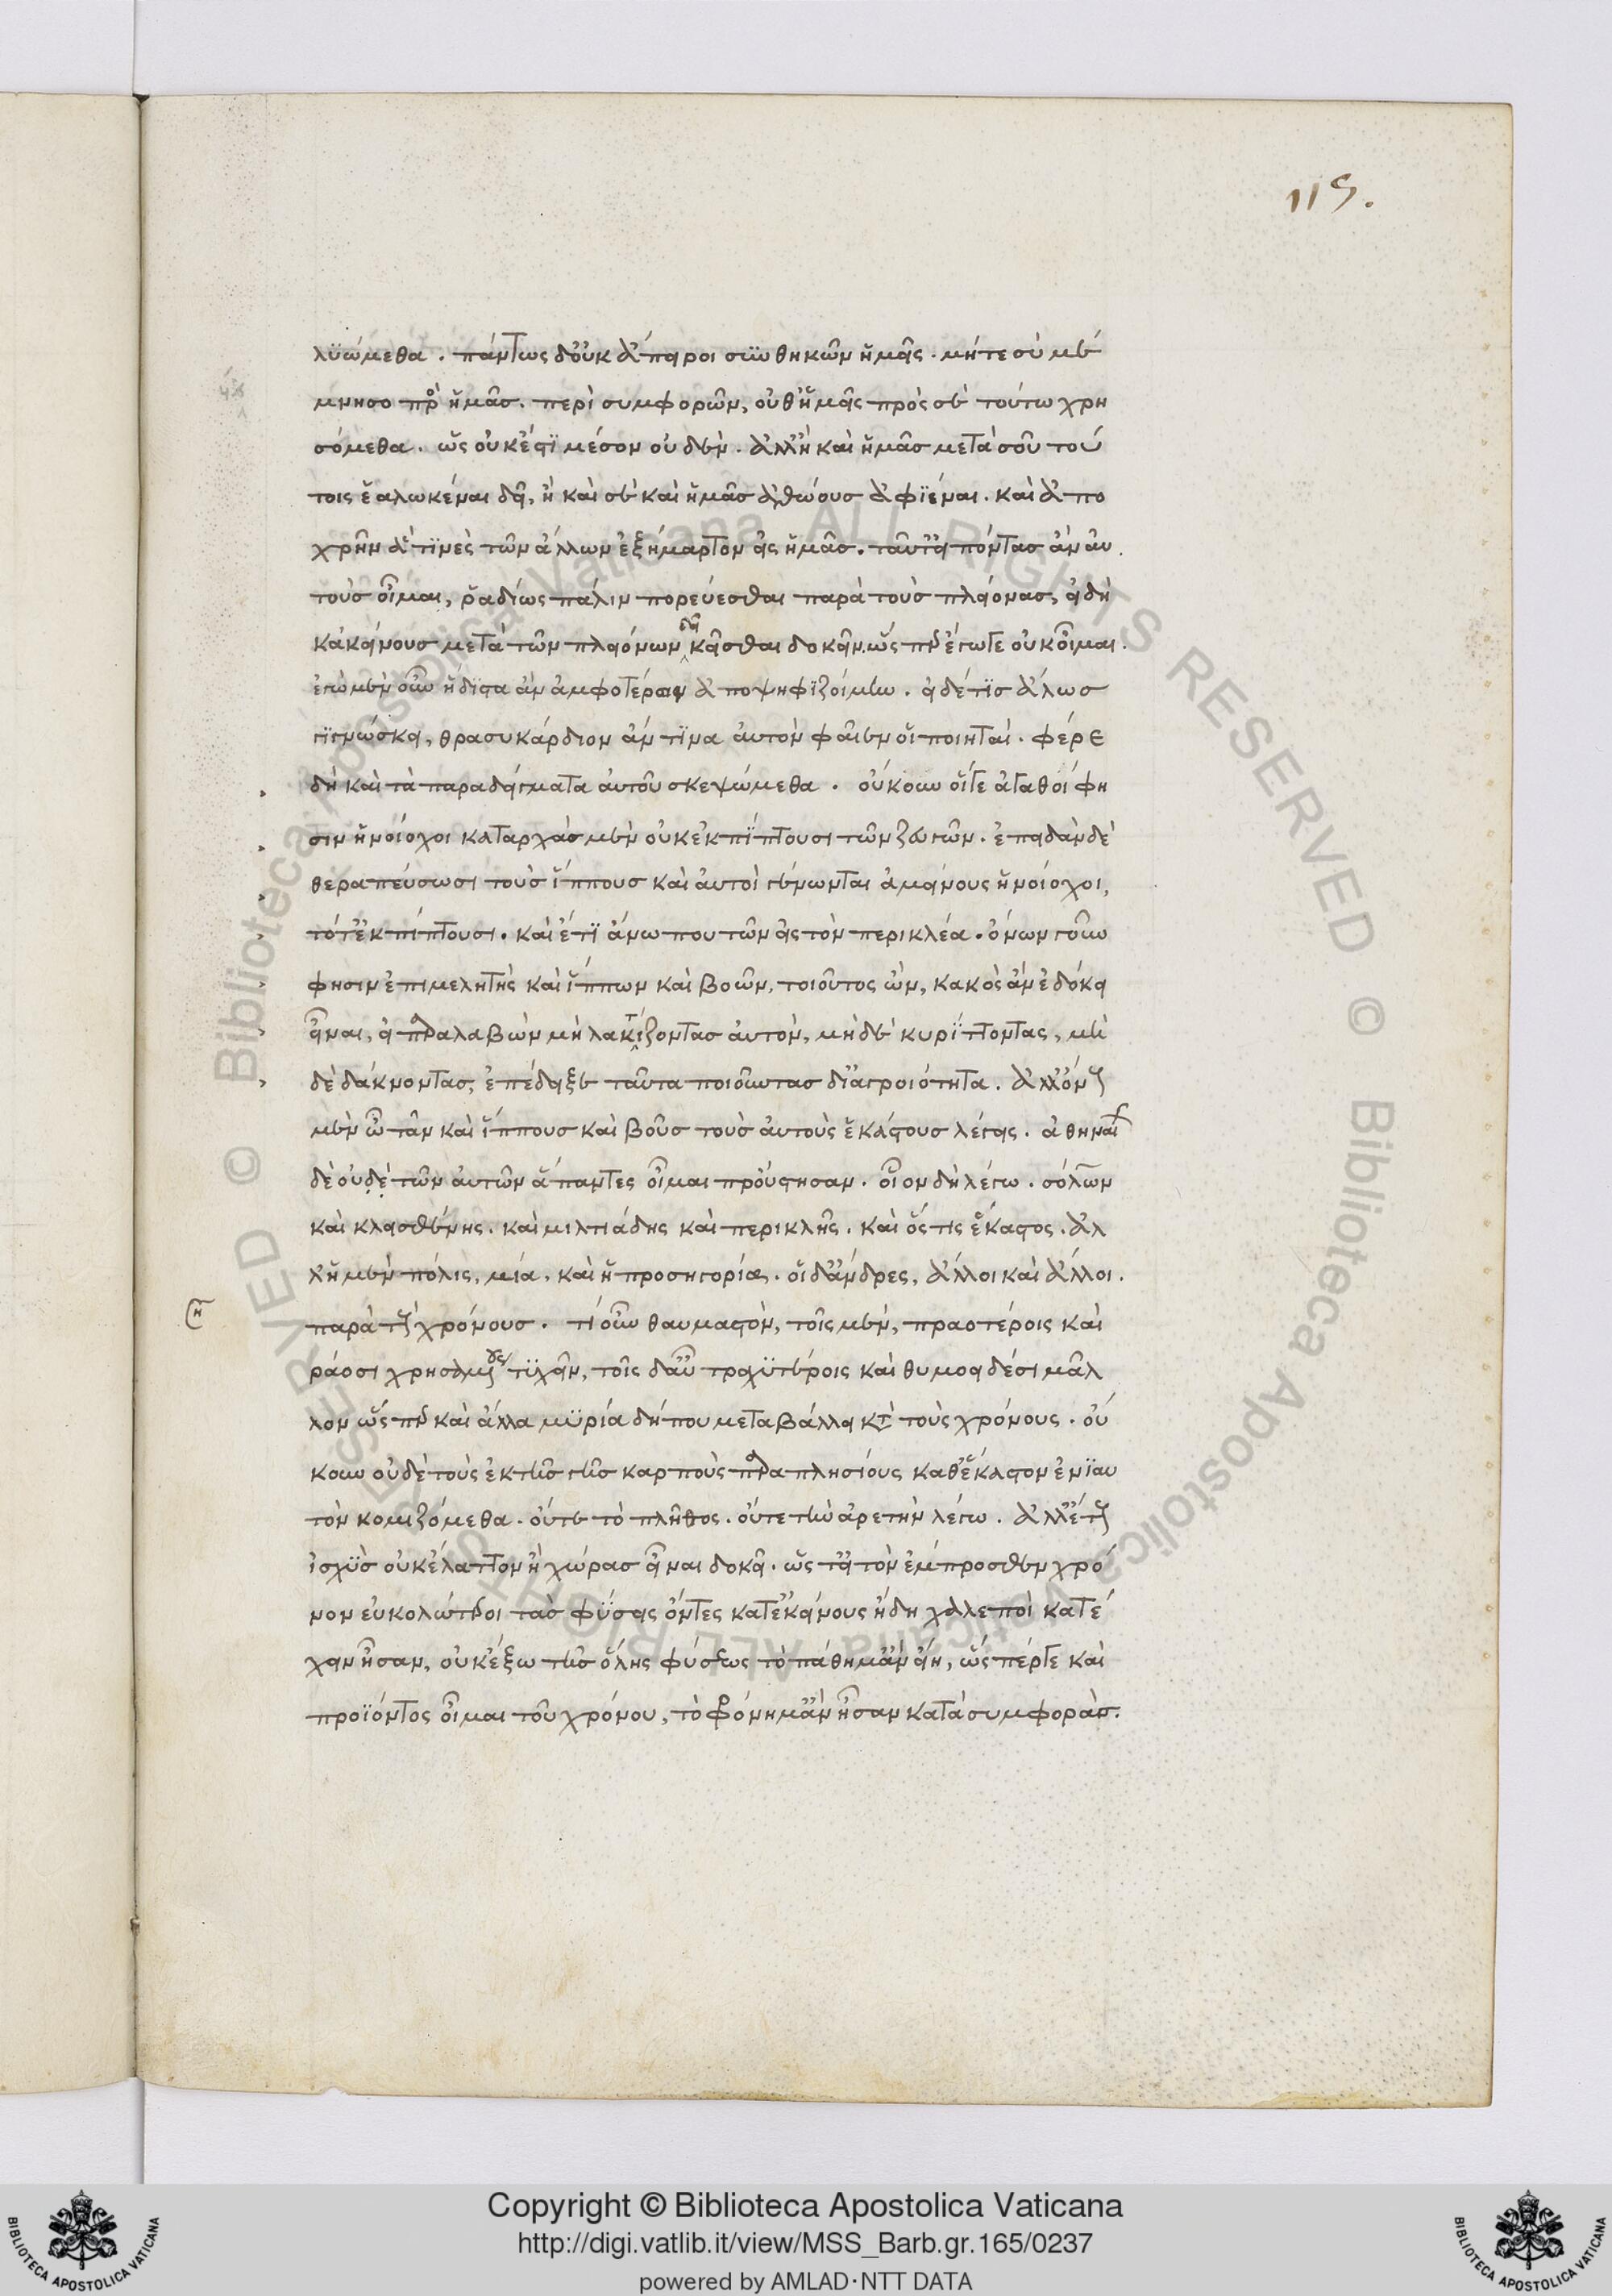 115.
λϋώμεθα. πάντως δ' οὐκ ἄποροι συνθηκῶν ἡμεῖς. μήτε σὺ μέ
μνησο πρὸς ἡμᾶς περὶ συμφορῶν, οὔθ' ἡμεῖς πρὸς σὲ τούτω χρη
σόμεθα. ὡς οὐκ ἔστι μέσον οὐδέν. ἀλλ' ἢ καὶ ἡμᾶς μετὰ σοῦ τού
τοις ἑαλωκέναι δεῖ, ἢ καὶ σὲ καὶ ἡμᾶς ἀθώους ἀφϊέναι. καὶ ἀπο
χρῆν εἴ τϊνες τῶν ἄλλων ἐξήμαρτον εἰς ἡμᾶς. ταῦτ' εἰπόντας ἂν αὐ
τοὺς οἶμαι, ῥαδίως πάλιν πορεύεσθαι παρὰ τοὺς πλείονας, εἰ δὴ
κἀκείνους μετὰ τῶν πλειόνων δεῖ κεῖσθαι δοκεῖν. ὥσπερ ἔγωγε οὐκ οἶμαι.
ἐγὼ μὲν οὖν ἥδϊστα ἂν ἀμφοτέρων ἀποψηφϊζοίμην. εἰ δέ τϊς ἄλλως
γϊγνώσκει, θρασυκάρδιον ἄν τϊνα αὐτὸν φαῖεν οἱ ποιηταί. φέρε
δὴ καὶ τὰ παραδείγματα αὐτοῦ σκεψώμεθα. οὔκουν οἵγε ἀγαθοί φη
σιν ἡνοίοχοι καταρχὰς μὲν οὐκ ἐκπϊπτουσι τῶν ζευγῶν. ἐπειδὰν δὲ
θεραπεύσωσι τοὺς ἵππους καὶ αὐτοὶ γένωνται ἀμείνους ἡνοίοχοι,
τότ' ἐκπίπτουσι. καὶ ἔτϊ ἄνω που τῶν εἰς τὸν περικλέα. ὄνων γοῦν
φησιν ἐπιμελητὴς καὶ ἵππων καὶ βοῶν, τοιοῦτος ὢν, κακὸς ἂν ἐδόκει
εἶναι, εἰ παραλαβὼν μὴ λακτίζοντας αὐτὸν, μὴδὲ κυρίττοντας, μη
δὲ δάκνοντας, ἐπέδειξε ταῦτα ποιοῦντας δι' ἀγροιότητα. ἀλλ' ὄνους
μὲν ὦ τᾶν καὶ ἵππους καὶ βοῦς τοὺς αὐτοὺς ἑκάστους λέγεις. ἀθηναίων
δὲ οὐδὲ τῶν αὐτῶν ἅπαντες οἶμαι προὔστησαν. οἷον δὴ λέγω. σόλων
καὶ κλεισθένης. καὶ μιλτιάδης καὶ περικλῆς. καὶ ὅστις ἕκαστος. ἀλ
λ' ἡ μὲν πόλις, μία, καὶ ἡ προσηγορία. οἱ δ' ἄνδρες, ἄλλοι καὶ ἄλλοι.
παρὰ τοὺς χρόνους. τί οὖν θαυμαστὸν, τοῖς μὲν, πραοτέροις καὶ
ῥάοσι χρησαμένους τϋχεῖν, τοῖς δ' αὖ τραχϋτέροις καὶ θυμοειδέσι μᾶλ
λον ὥσπερ καὶ ἄλλα μϋρία δήπου μεταβάλλει κατὰ τοὺς χρόνους. οὔ
κουν οὐδὲ τοὺς ἐκ τῆς γῆς καρποὺς παραπλησίους καθ' ἕκαστον ἐνϊαυ
τὸν κομιζόμεθα. οὔτε τὸ πλῆθος. οὔτε τὴν ἀρετὴν λέγω. ἀλλ' ἔτους
ἰσχϋς οὐκ ἔλαττον ἢ χώρας εἶναι δοκεῖ. ὡς τ' εἰ τὸν ἔμπροσθεν χρό
νον εὐκολώτεροι τὰς φϋσεις ὄντες κατ' ἐκείνους ἤδη χαλεποὶ κατέ
χειν ἦσαν, οὐκ ἔξω τῆς ὅλης φύσεως τὸ πάθημ' ἂν εἴη, ὥσπέργε καὶ
προϊόντος οἶμαι τοῦ χρόνου, τὸ φρόνημ' ἂν ἦσαν κατὰ συμφοράς.
Copyright © Biblioteca Apostolica Vaticana
http://digi.vatlib.it/view/MSS_Barb.gr.165/0237
powered by AMLAD·NTT DATA